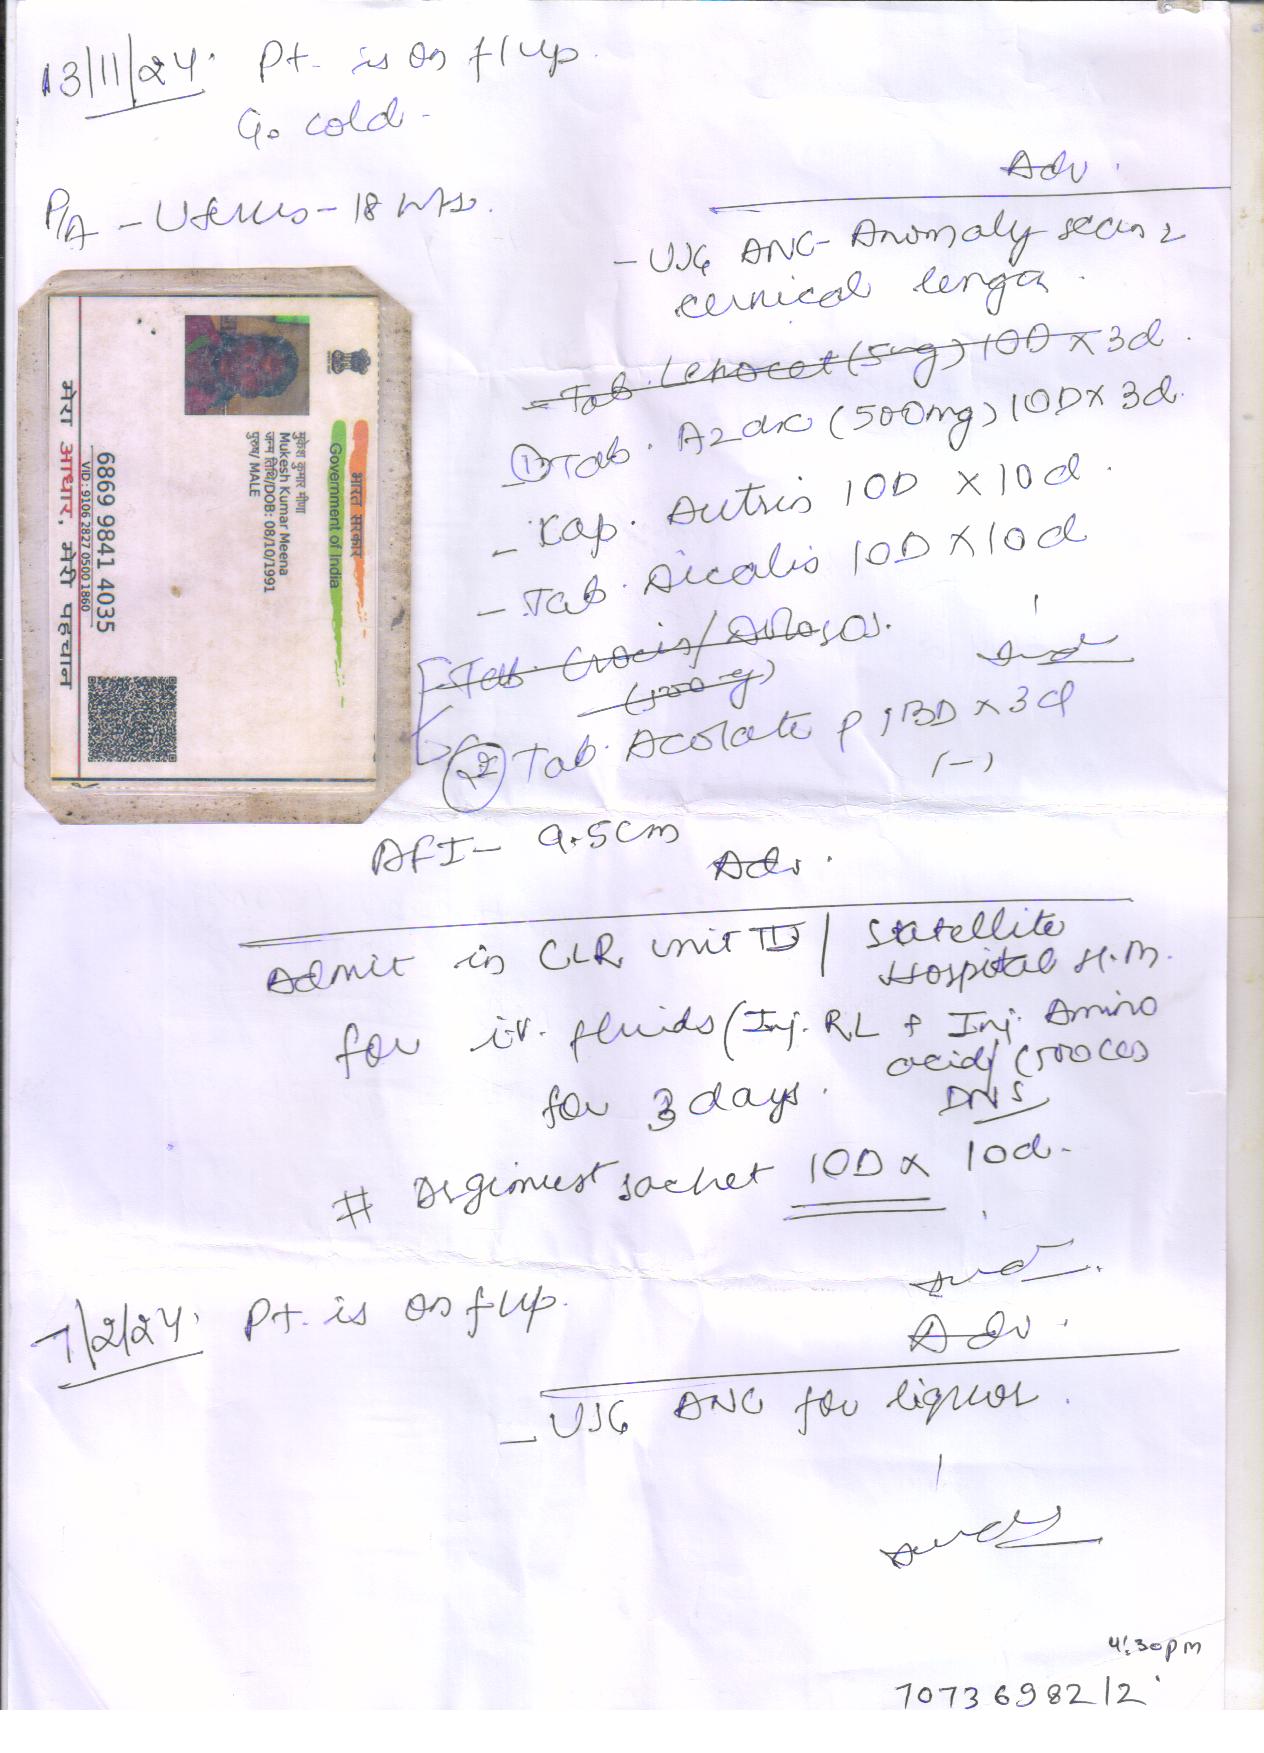 13/11/24. Pt. is on f/up.
C/o cold -
P/A - Uterus - 18 wks.
Adv.
- USG ANC- Anomaly scan
cervical length.
Tab. (5mg) 1OD x 3d.
① Tab. (500mg) 1OD x 3d.
- Cap. Autrin 1OD x 10d.
- Tab. Dicalis 1OD x 10d
Tab. Crocin/
(500 mg)
② Tab. Acolate P 1BD x 3d
(-)
भारत सरकार
Government of India
मुकेश कुमार मीणा
Mukesh Kumar Meena
जन्म तिथि/DOB: 08/10/1991
पुरुष/ MALE
6869 9841 4035
VID: 9106 2827 0500 1860
मेरा आधार, मेरी पहचान
AFI - 9.5cm
Adv.
Admit in CLR unit III / Satellite
Hospital H.M.
for i.v. fluids (Inj. RL + Inj. Amino
acid/ (500cc)
DNS
for 3 days.
# sachet 1OD x 10d.
7/2/24. Pt. is on f/up.
Adv.
- USG ANC for liquor.
4:30pm
7073698212